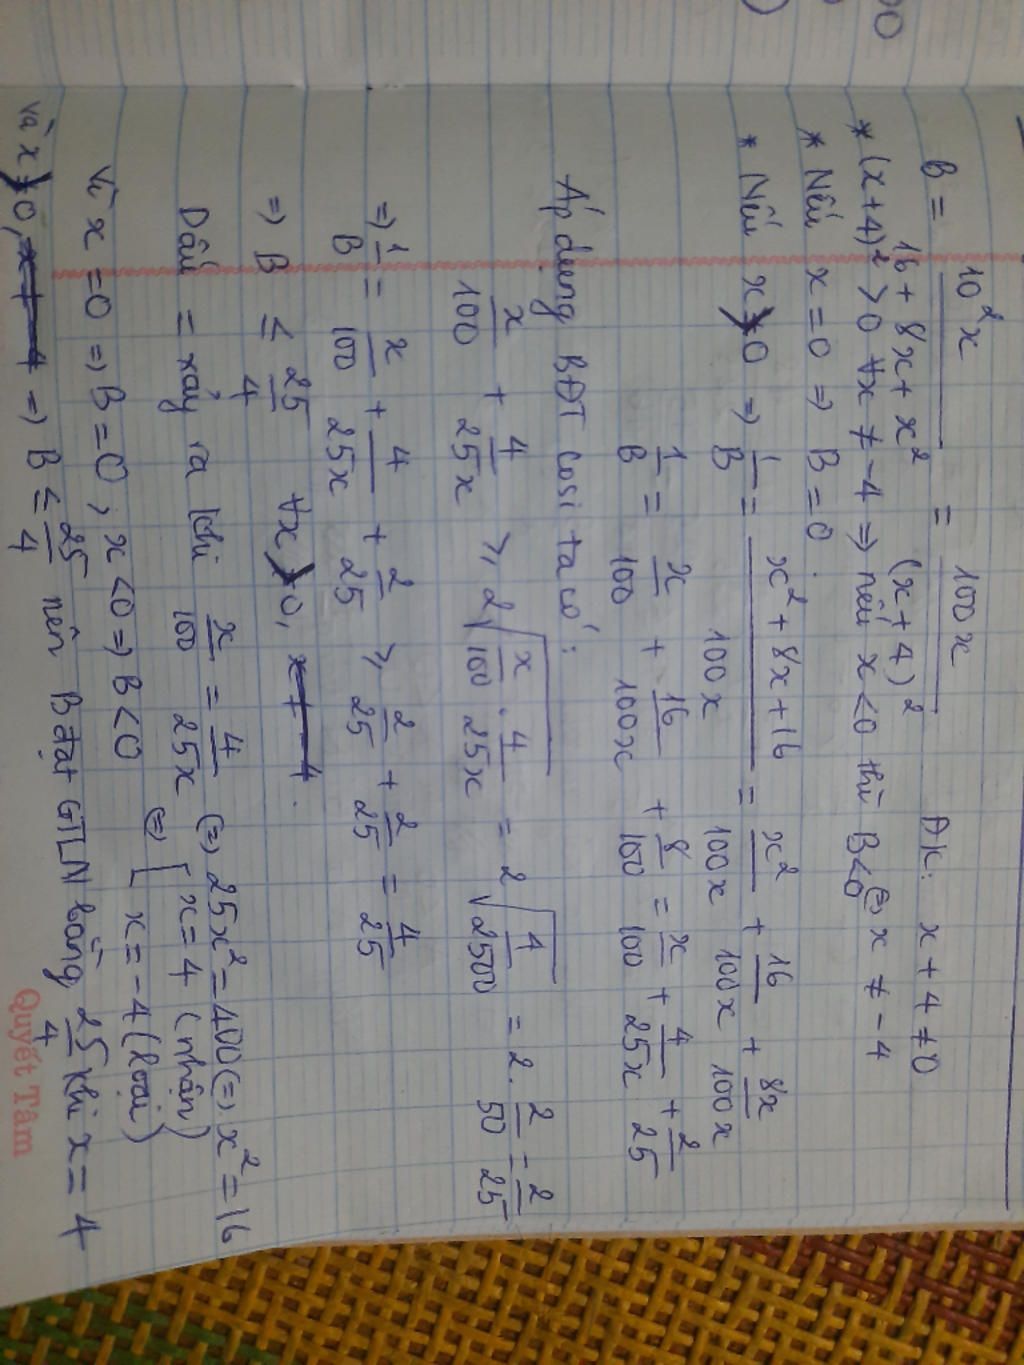 00
B = 10²x / (16 + 8x + x²) = 100x / (x + 4)²   ĐK: x + 4 ≠ 0 ⇔ x ≠ -4
* (x + 4)² > 0 ∀x ≠ -4 ⇒ nếu x < 0 thì B < 0
* Nếu x = 0 ⇒ B = 0.
* Nếu x > 0 ⇒ 1/B = (x² + 8x + 16) / 100x = x²/100x + 16/100x + 8x/100x
1/B = x/100 + 16/100x + 8/100 = x/100 + 4/25x + 2/25
Áp dụng BĐT Cosi ta có:
x/100 + 4/25x ≥ 2√(x/100 . 4/25x) = 2√(4/2500) = 2. 2/50 = 2/25
⇒ 1/B = x/100 + 4/25x + 2/25 ≥ 2/25 + 2/25 = 4/25
⇒ B ≤ 25/4   ∀x > 0, x ≠ -4.
Dấu = xảy ra khi x/100 = 4/25x ⇔ 25x² = 400 ⇔ x² = 16
⇔ [ x = 4 (nhận)
x = -4 (loại)
Vì x = 0 ⇒ B = 0; x < 0 ⇒ B < 0
và x > 0, x ≠ -4 ⇒ B ≤ 25/4 nên B đạt GTLN bằng 25/4 khi x = 4
Quyết Tâm